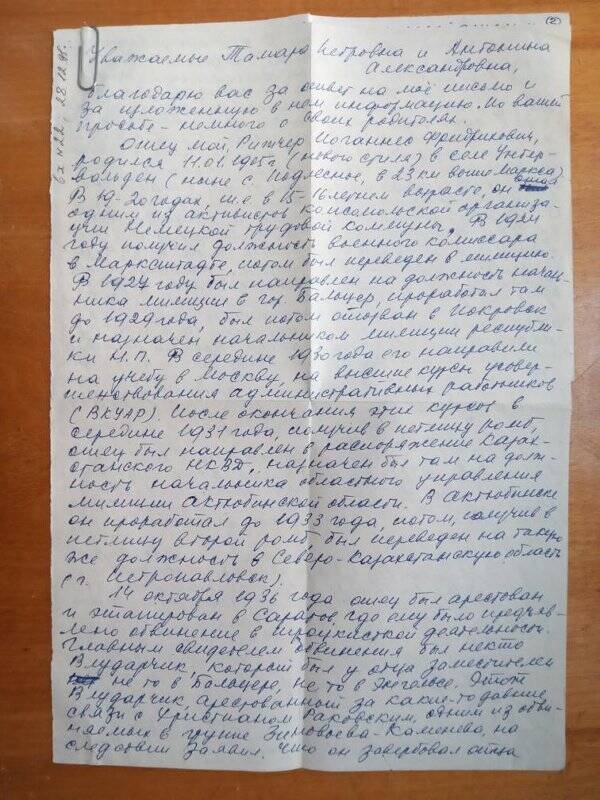 (2)
Вх N 22, 28.12.98г.
Уважаемые Тамара Петровна и Антонина
Александровна,
Благодарю вас за ответ на моё письмо и
за изложенную в нем информацию. По вашей
просьбе - немного о своих родителях.
Отец мой, Рихтер Иоганнес Фридрихович,
родился 11.01.1905г (нового стиля) в селе Унтер-
вальден (ныне с. Подлесное, в 23 км выше Маркса).
В 19-20 годах, т.е. в 15-16 летнем возрасте, он был
одним из активистов комсомольской организа-
ции Немецкой трудовой коммуны. В 1924
году получил должность военного комиссара
в Марксштадте, потом был переведен в милицию.
В 1927 году был направлен на должность началь-
ника милиции в гор. Бальцер, проработал там
до 1929 года, был потом отозван в Покровск
и назначен начальником милиции республи-
ки Н.П. В середине 1930 года его направили
на учебу в Москву, на высшие курсы усовер-
шенствования административных работников
(ВКУАР). После окончания этих курсов в
середине 1931 года, получив в петлицу ромб,
отец был направлен в распоряжение Казах-
станского НКВД, назначен был там на долж-
ность начальника областного управления
милиции Актюбинской области. В Актюбинске
он проработал до 1933 года, потом, получив в
петлицу второй ромб, был переведен на такую
же должность в Северо-Казахстанскую область
(г. Петропавловск).
14 октября 1936 года отец был арестован
и этапирован в Саратов, где ему было предъяв-
лено обвинение в троцкистской деятельности.
Главным свидетелем обвинения был некто
Влударчик, который был у отца заместителем
не то в Бальцере, не то в Энгельсе. Этот
Влударчик, арестованный за какие-то давние
связи с Христианом Раковским, одним из обви-
няемых в группе Зиновьева-Каменева, на
следствии заявил, что он завербовал отца